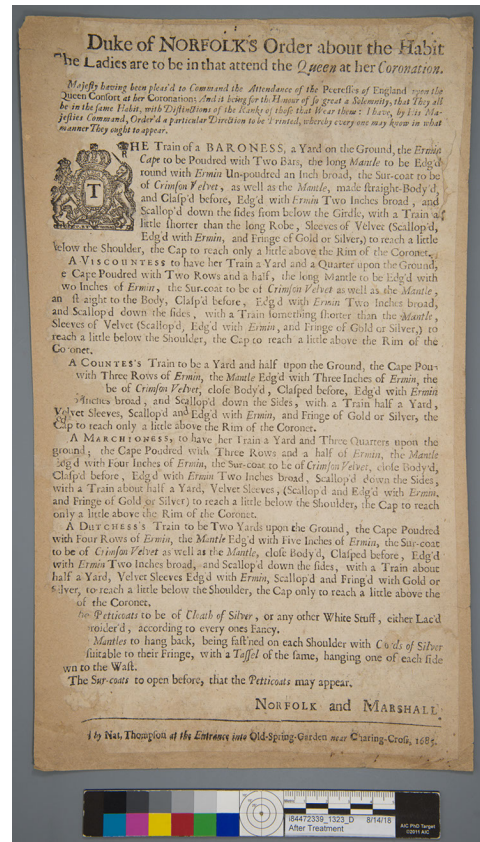 Duke of NORFOLK'S Order about the Habit
The Ladies are to be in that attend the Queen at her Coronation.
Majesty having been pleas'd to Command the Attendance of the Peeresses of England upon the
Queen Consort at her Coronation: And it being for the Honour of so great a Solemnity, that They all
be in the same Habit, with Distinctions of the Ranks of those that Wear them: I have, by His Ma-
jesties Command, Order'd a particular Direction to be Printed, whereby every one may know in what
manner They ought to appear.
THE Train of a BARONESS, a Yard on the Ground, the Ermin
Cape to be Poudred with Two Bars, the long Mantle to be Edg'd
round with Ermin Un-poudred an Inch broad, the Sur-coat to be
of Crimson Velvet, as well as the Mantle, made straight-Body'd,
and Clasp'd before, Edg'd with Ermin Two Inches broad, and
Scallop'd down the sides from below the Girdle, with a Train a
little shorter than the long Robe, Sleeves of Velvet (Scallop'd,
Edg'd with Ermin, and Fringe of Gold or Silver,) to reach a little
below the Shoulder, the Cap to reach only a little above the Rim of the Coronet.
A VISCOUNTESS to have her Train a Yard and a Quarter upon the Ground,
e Cape Poudred with Two Rows and a half, the long Mantle to be Edg'd with
wo Inches of Ermin, the Sur-coat to be of Crimson Velvet as well as the Mantle,
an st aight to the Body, Clasp'd before, Edg'd with Ermin Two Inches broad,
and Scallop'd down the sides, with a Train something shorter than the Mantle,
Sleeves of Velvet (Scallop'd, Edg'd with Ermin, and Fringe of Gold or Silver,) to
reach a little below the Shoulder, the Cap to reach a little above the Rim of the
Coronet.
A COUNTES's Train to be a Yard and half upon the Ground, the Cape Pou-
with Three Rows of Ermin, the Mantle Edg'd with Three Inches of Ermin, the
be of Crimson Velvet, close Body'd, Clasped before, Edg'd with Ermin
Inches broad, and Scallop'd down the Sides, with a Train half a Yard,
Velvet Sleeves, Scallop'd and Edg'd with Ermin, and Fringe of Gold or Silver, the
Cap to reach only a little above the Rim of the Coronet.
A MARCHIONESS, to have her Train a Yard and Three Quarters upon the
ground; the Cape Poudred with Three Rows and a half of Ermin, the Mantle
Edg'd with Four Inches of Ermin, the Sur-coat to be of Crimson Velvet, close Body'd,
Clasp'd before, Edg'd with Ermin Two Inches broad, Scallop'd down the Sides,
with a Train about half a Yard, Velvet Sleeves, (Scallop'd and Edg'd with Ermin,
and Fringe of Gold or Silver) to reach a little below the Shoulder, the Cap to reach
only a little above the Rim of the Coronet.
A DUTCHESS's Train to be Two Yards upon the Ground, the Cape Poudred
with Four Rows of Ermin, the Mantle Edg'd with Five Inches of Ermin, the Sur-coat
to be of Crimson Velvet as well as the Mantle, close Body'd, Clasped before, Edg'd
with Ermin Two Inches broad, and Scallop'd down the sides, with a Train about
half a Yard, Velvet Sleeves Edg'd with Ermin, Scallop'd and Fring'd with Gold or
Silver, to reach a little below the Shoulder, the Cap only to reach a little above the
of the Coronet.
Petticoats to be of Cloath of Silver, or any other White Stuff, either Lac'd
roider'd, according to every ones Fancy.
Mantles to hang back, being fast'ned on each Shoulder with Cords of Silver
suitable to their Fringe, with a Tassel of the same, hanging one of each side
wn to the Wast.
The Sur-coats to open before, that the Petticoats may appear.
NORFOLK and MARSHALL
d by Nat. Thompson at the Entrance into Old-Spring-Garden near Charing-Cross, 1685.
i84472339_1323_D 8/14/18
After Treatment
AIC PhD Target
©2011 AIC